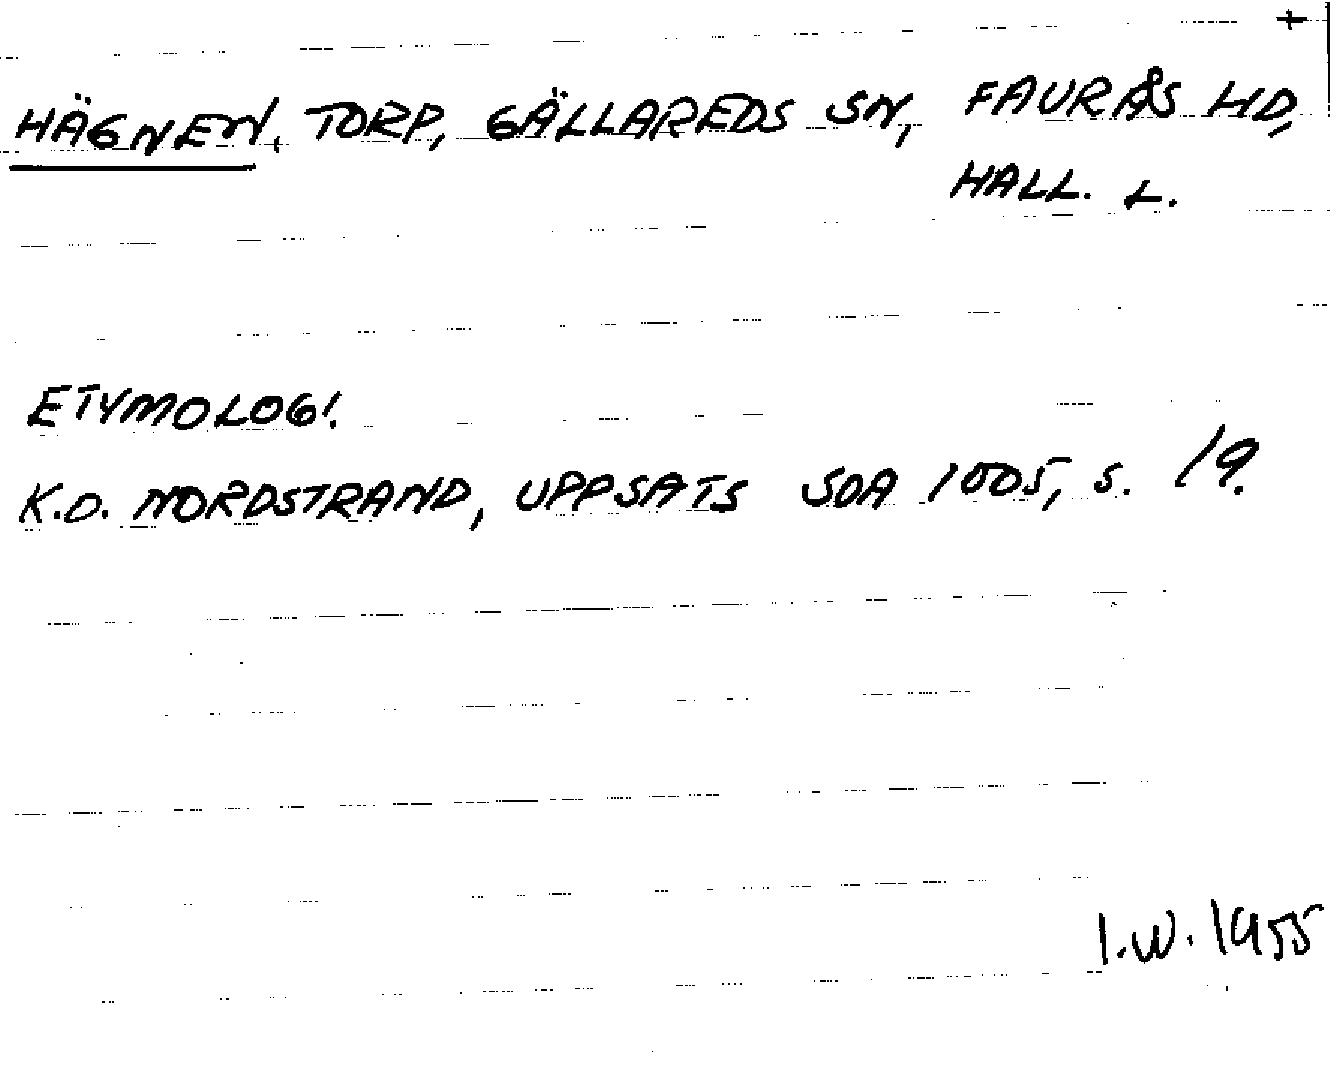 +
HÄGNEN, TORP, GÄLLAREDS SN, FAURÅS HD,
HALL. L.
ETYMOLOGI.
K.D. NORDSTRAND, UPPSATS SOA 1005, S. 19.
I.W. 1955